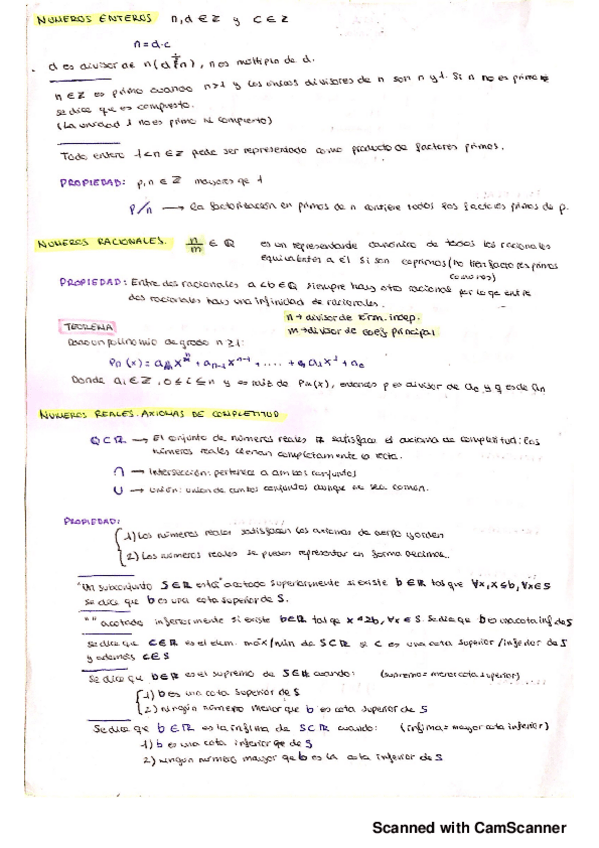 NUMEROS ENTEROS n, d ∈ Z y c ∈ Z
n = d·c
d es divisor de n (d/n), n es múltiplo de d.
n ∈ Z es primo cuando n>1 y los únicos divisores de n son n y 1. Si n no es primo
se dice que es compuesto.
(La unidad 1 no es primo ni compuesto)
Todo entero 1<n ∈ Z puede ser representado como producto de factores primos.
PROPIEDAD: p, n ∈ Z mayores que 1
P/n → la factorización en primos de n contiene todos los factores primos de p.
NUMEROS RACIONALES. n/m ∈ Q es un representante canónico de todos los racionales
equivalentes a él si son coprimos (no tien factores primos
comunes)
PROPIEDAD: Entre dos racionales a<b ∈ Q siempre hay otro racional por lo que entre
dos racionales hay una infinidad de racionales.
n → divisor de term. indep.
m → divisor de coef. principal
TEOREMA
Dado un polinomio de grado n ≥ 1:
Pn (x) = an x^n + an-1 x^n-1 + .... + a1 x^1 + a0
Donde ai ∈ Z, 0 ≤ i ≤ n y es raiz de Pn(x), entonces p es divisor de a0 y q es de an
NUMEROS REALES. AXIOMAS DE COMPLETITUD
Q ⊂ R. → El conjunto de números reales R satisface el axioma de completitud: los
números reales llenan completamente la recta.
∩ → Intersección: pertenece a ambos conjuntos
∪ → unión: union de ambos conjuntos aunque no sea común.
PROPIEDAD:
1) Los números reales satisfacen los axiomas de cuerpo y orden
2) Los números reales se pueden representar en forma decimal.
"Un subconjunto S ∈ R está" acotado superiormente si existe b ∈ R tal que ∀x, x≤b, ∀x∈S
se dice que b es una cota superior de S.
"" acotado inferiormente si existe b∈R tal que x ≥ b, ∀x ∈ S. Se dice que b es una cota inf de S
Se dice que c∈R es el elem. máx/mín de S⊂R si c es una cota superior/inferior de S
y además c∈S
Se dice que b∈R es el supremo de S∈R cuando: (supremo= menor cota superior)
1) b es una cota superior de S
2) ningún número menor que b es cota superior de S
Se dice que b ∈ R es la ínfima de S⊂R cuando: (ínfima= mayor cota inferior)
1) b es una cota inferior de S
2) ningún número mayor que b es la cota inferior de S
Scanned with CamScanner